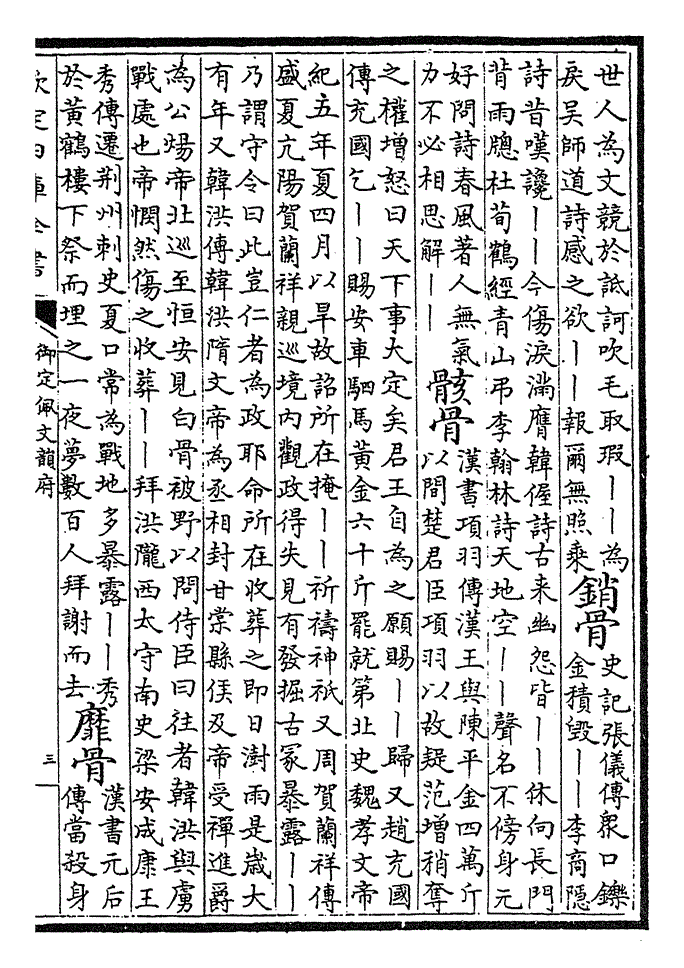 世人為文競於詆訶吹毛取瑕丨丨為
戾吳師道詩感之欲丨丨報爾無照乘
銷骨
史記張儀傳衆口鑠
金積毁丨丨李商隱
詩昔嘆讒丨丨今傷淚滿膺韓偓詩古来幽怨皆丨丨休向長門
背雨牎杜荀鶴經青山弔李翰林詩天地空丨丨聲名不傍身元
好問詩春風著人無氣
力不必相思解丨丨
骸骨
漢書項羽傳漢王與陳平金四萬斤
以間楚君臣項羽以故疑范增稍奪
之權增怒曰天下事大定矣君王自為之願賜丨丨歸又趙充國
傳充國乞丨丨賜安車駟馬黄金六十斤罷就第北史魏孝文帝
紀五年夏四月以旱故詔所在掩丨丨祈禱神祇又周賀蘭祥傳
盛夏亢陽賀蘭祥親巡境内觀政得失見有發掘古冢暴露丨丨
乃謂守令曰此豈仁者為政耶命所在收葬之即日澍雨是歲大
有年又韓洪傳韓洪隋文帝為丞相封甘棠縣侯及帝受禪進爵
為公煬帝北巡至恒安見白骨被野以問侍臣曰往者韓洪與虜
戰處也帝憫然傷之收葬丨丨拜洪隴西太守南史梁安成康王
秀傳遷荆州刺史夏口常為戰地多暴露丨丨秀
於黄鶴樓下祭而埋之一夜夢數百人拜謝而去
靡骨
漢書元后
傳當殺身
欽定四庫全書
御定佩文韻府
三